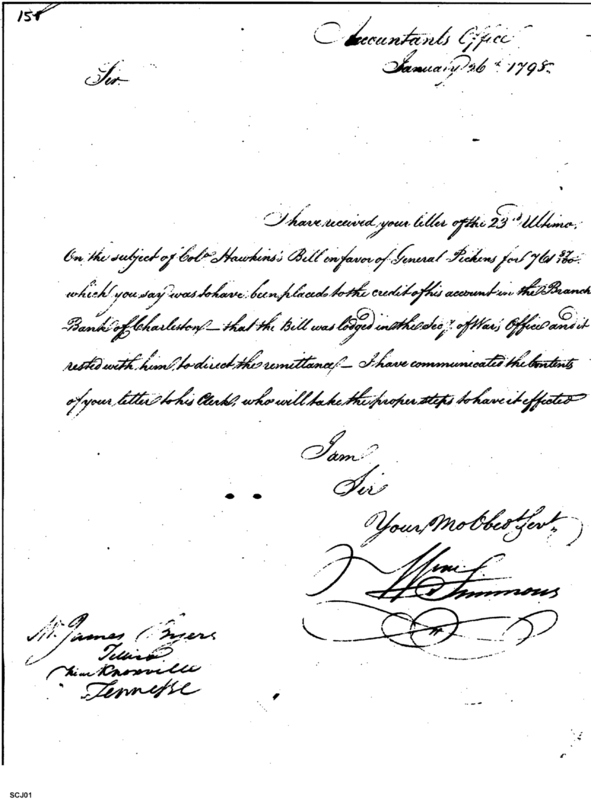 158
Accountants Office
January 26th 1798.
Sir
I have received your letter of the 23rd Ultimo.
On the subject of Colo Hawkins's Bill in favor of General Pickens for
which you say was to have been placed to the credit of his account in the Branch
Bank of Charleston — that the Bill was lodged in the Secy. of War's Office and it
rested with him to direct the remittance — I have communicated the Contents
of your letter to his Clerk, who will take the proper steps to have it effected
I am
Sir
Your Mo Obedt Servt
Wm Simmons
Mr. James Byers
Tellico
near Knoxville
Tennessee
SCJ01